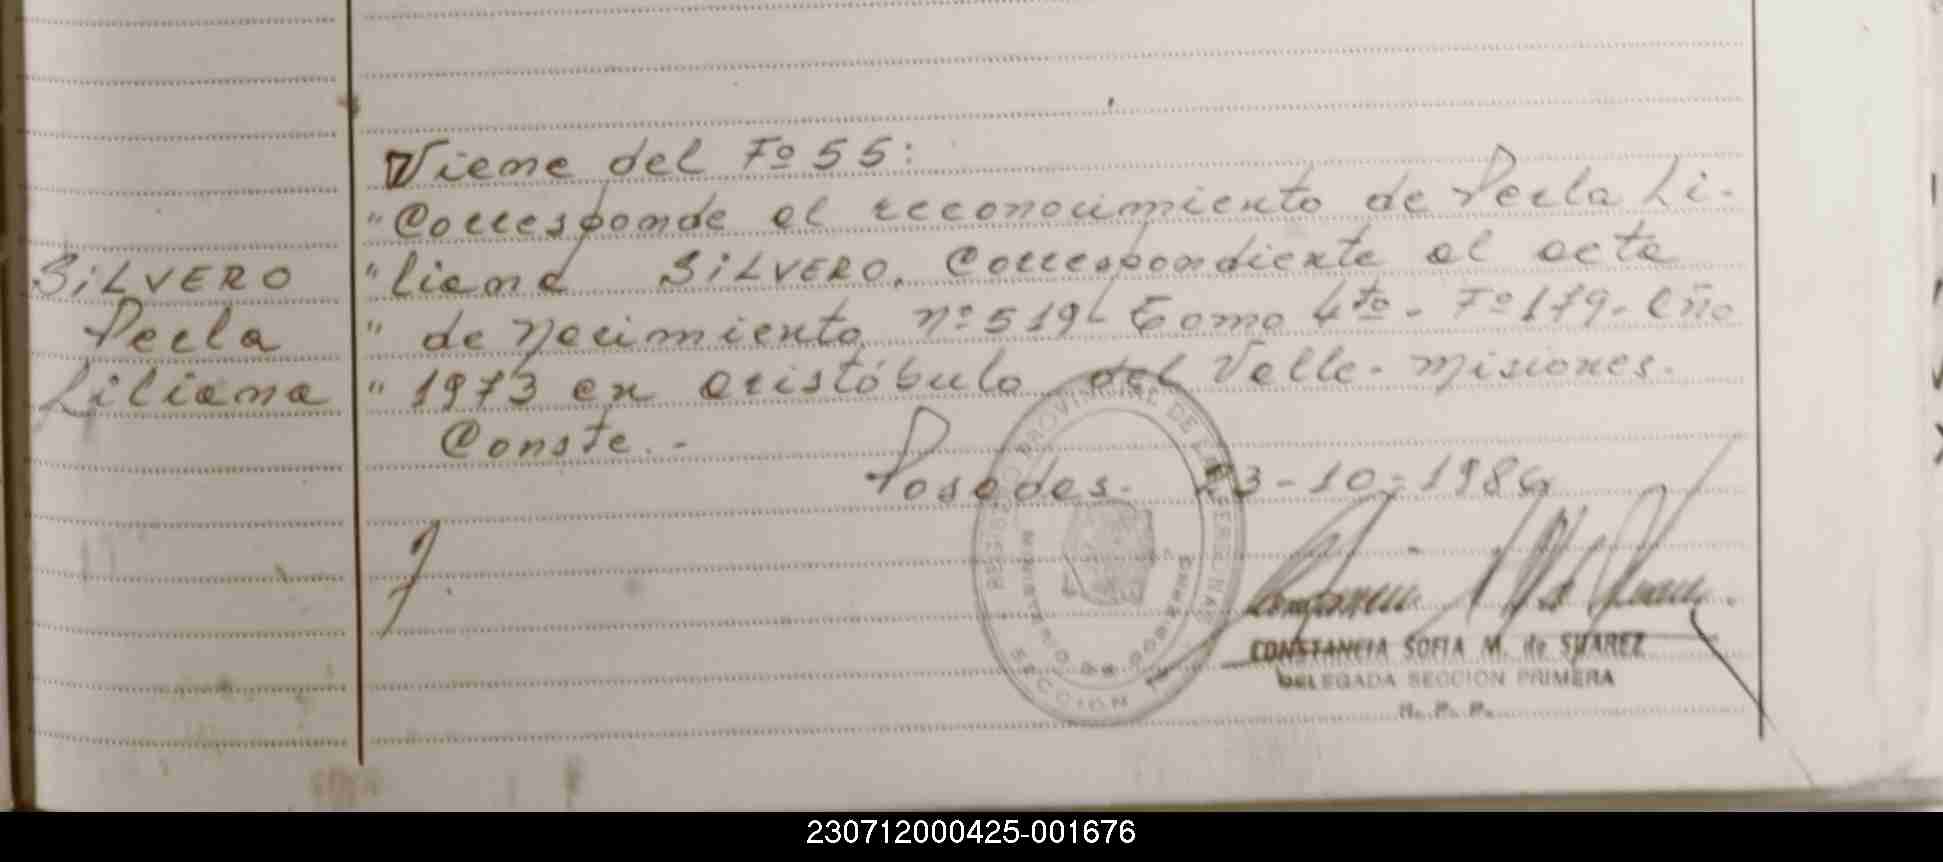 Viene del Fº 55:
"Corresponde al reconocimiento de Perla Li-
SILVERO "liana SILVERO. Correspondiente al acta
Perla " de Nacimiento Nº 519- Tomo 4to. Fº 179. Año
Liliana " 1973 en Aristóbulo del Valle. Misiones.
Conste.-
Posadas. 23-10-1984
REGISTRO PROVINCIAL DE LAS PERSONAS
MINISTERIO DE GOBIERNO
SECCION 1
CONSTANCIA SOFIA M. de SUAREZ
DELEGADA SECCION PRIMERA
R. P. P.
230712000425-001676